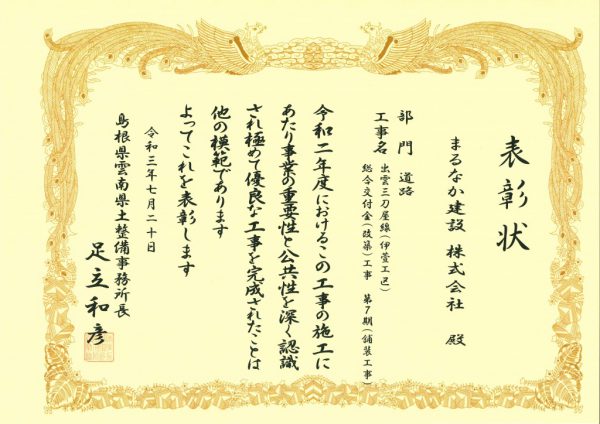 表彰状
まるなか建設 株式会社 殿
部門 道路
工事名 出雲三刀屋線(伊萱工区)
総合交付金(改築)工事 第7期(舗装工事)
令和二年度におけるこの工事の施工に
あたり事業の重要性と公共性を深く認識
され極めて優良な工事を完成されたことは
他の模範であります
よってこれを表彰します
令和三年七月二十日
島根県雲南県土整備事務所長
足立和彦